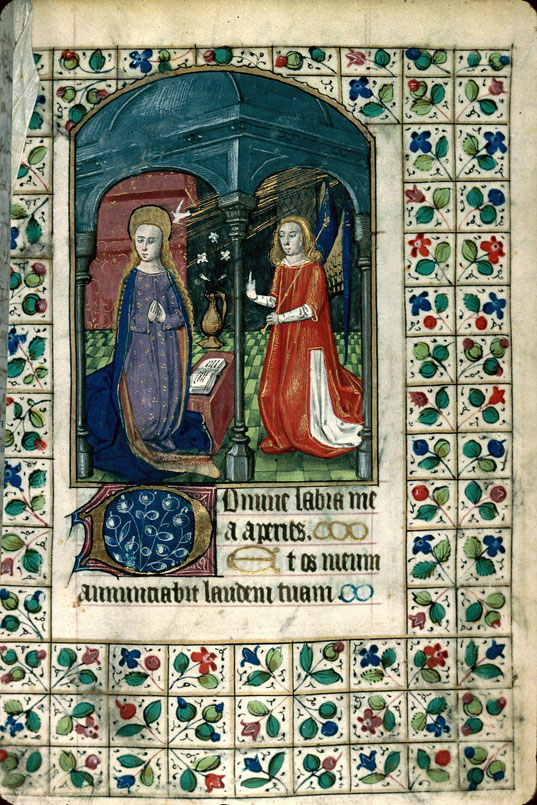 Domine labra me
a aperies.
Et os meum
annunciabit laudem tuam